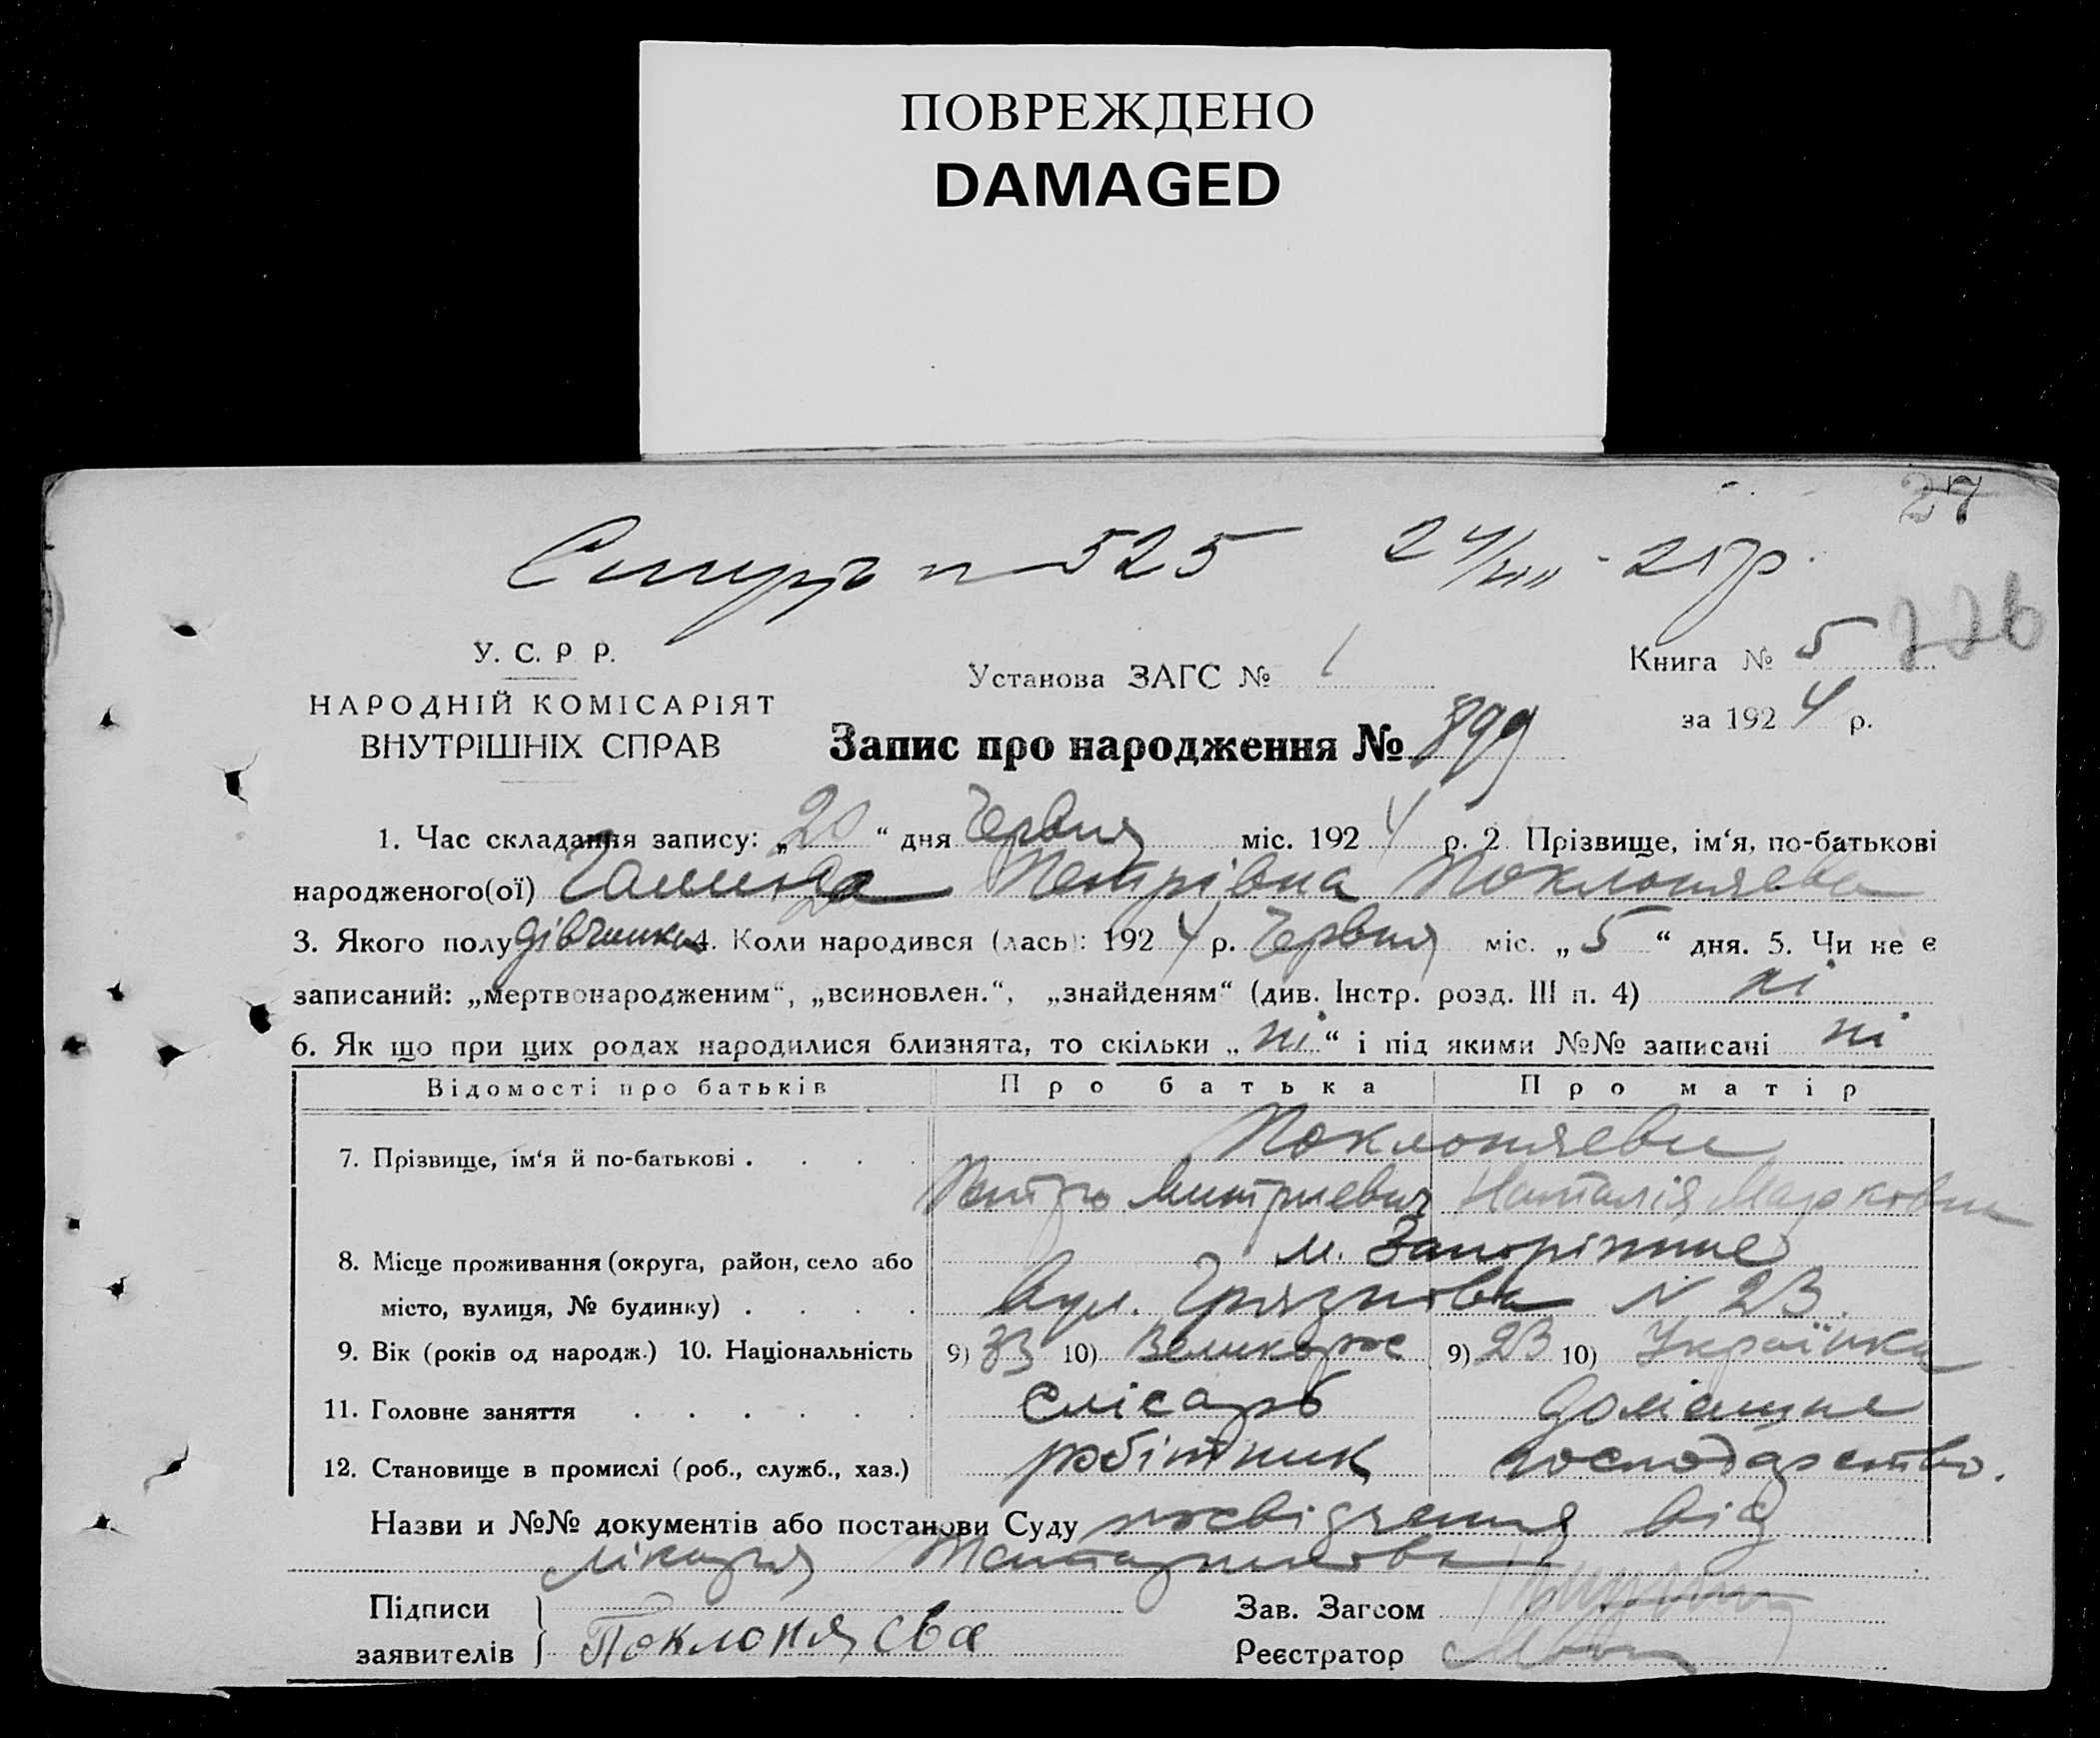 ПОВРЕЖДЕНО
DAMAGED
27
Смерть n 525 24/VIII - 25 р.
226
У. С. Р Р.
НАРОДНІЙ КОМІСАРІЯТ
ВНУТРІШНІХ СПРАВ
Установа ЗАГС № 1
Книга № 5
за 1924 р.
Запис про народження № 899
1. Час складання запису: „20“ дня Червня міс. 1924 р. 2 Прізвище, ім‘я, по-батькові
народженого(ої) Петрівна Поклоняева
3. Якого полу дівчинка 4. Коли народився (лась): 1924 р. Червня міс. „5“ дня. 5. Чи не є
записаний: „мертвонародженим“, „всиновлен.“, „знайденям“ (див. Інстр. розд. III п. 4) ні
6. Як що при цих родах народилися близнята, то скільки „ні“ і під якими №№ записані ні
Відомості про батьків Про батька Про матір
7. Прізвище, ім‘я й по-батькові . . . . Поклоняеви
Петро Митриевич Наталія Марковна
8. Місце проживання (округа, район, село або м. Запоріжже
місто, вулиця, № будинку) . . . . вул. Грязнова N 23.
9. Вік (років од народж.) 10. Національність 9) 33 10) Великорос 9) 23 10) Українка
11. Головне заняття . . . . . . Слісарь домашне
12. Становище в промислі (роб., служб., хаз.) робітник господарство.
Назви и №№ документів або постанови Суду посвідчення від
лікаря
Підписи
заявителів
Поклоняева
Зав. Загсом
Реєстратор